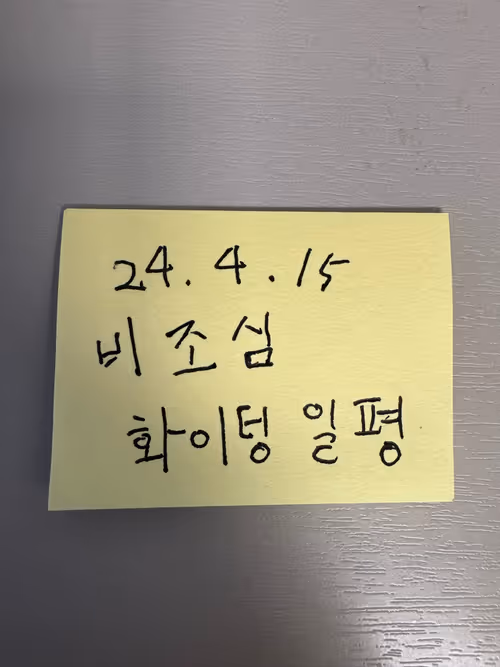 24.4.15
비 조심
화이팅 일평